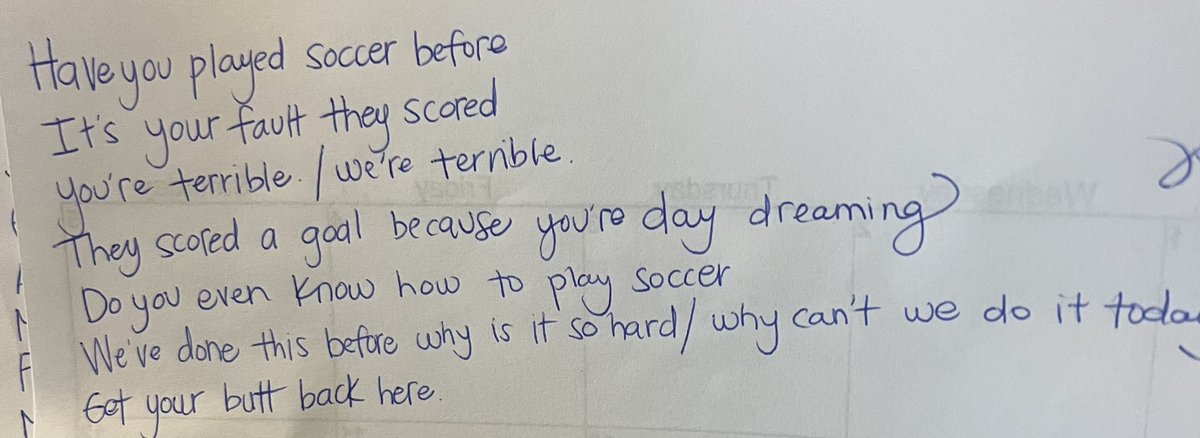 Have you played soccer before
It's your fault they scored
you're terrible. / we're terrible.
They scored a goal because you're day dreaming
Do you even know how to play soccer
We've done this before why is it so hard / why can't we do it today
Get your butt back here.